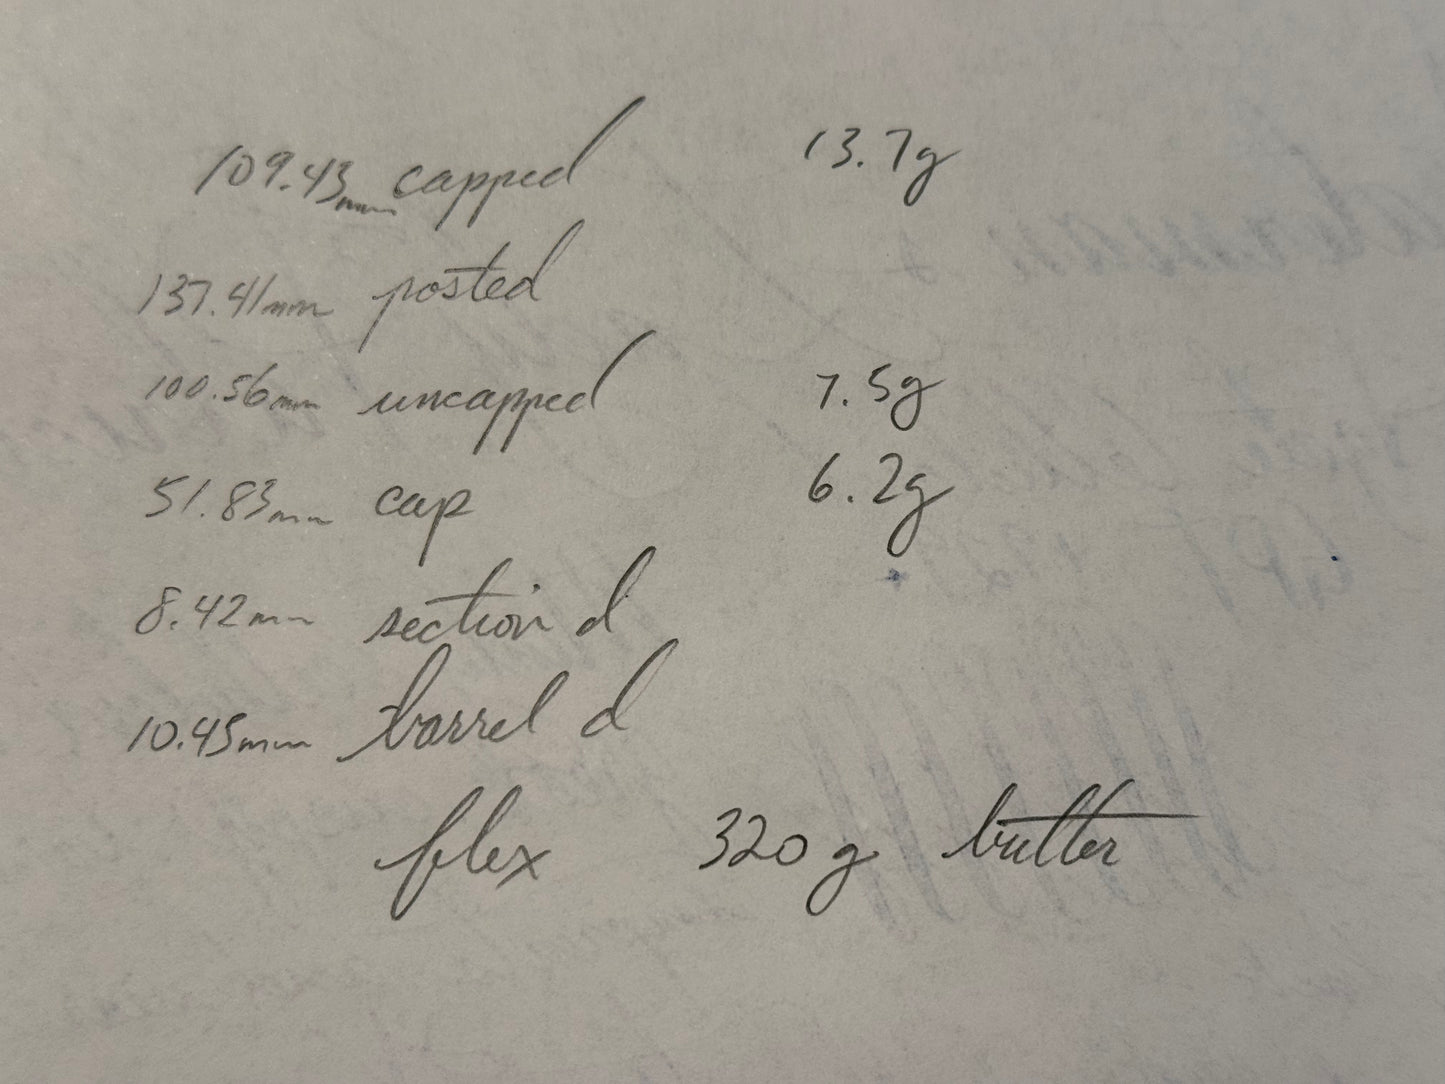 109.43mm capped 13.7g
137.41mm posted
100.56mm uncapped 7.5g
51.83mm cap 6.2g
8.42mm section d
10.45mm barrel d
flex 320 g butter